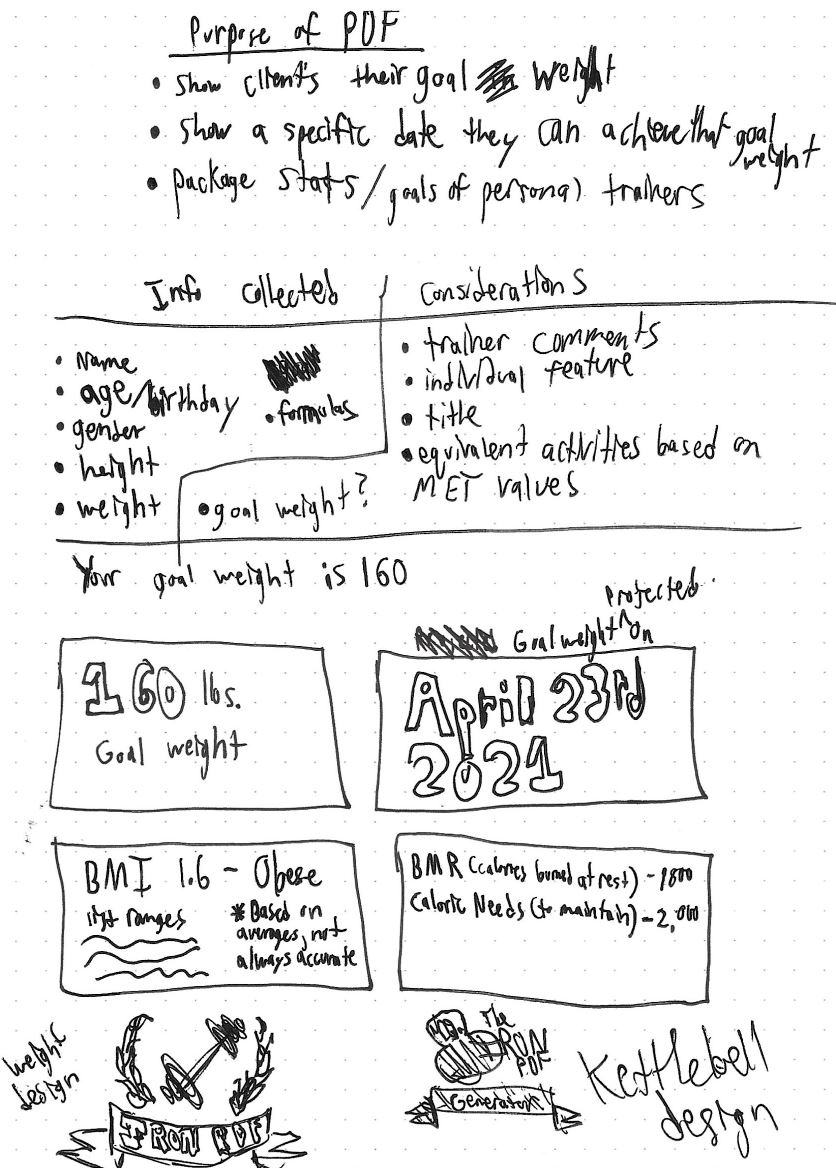 Purpose of PDF
• Show clients their goal weight
• Show a specific date they can achieve that goal weight
• package stats/goals of personal trainers
Info collected
Considerations
• Name
• age/birthday
• gender
• height
• weight
• formulas
• goal weight?
• trainer comments
• individual feature
• title
• equivalent activities based on
MET values
Your goal weight is 160
160 lbs.
Goal weight
Goal weight ^ Projected on
April 23rd
2021
BMI 1.6 - Obese
list ranges
* Based on
averages, not
always accurate
BMR (calories burned at rest) - 1800
Caloric Needs (to maintain) - 2,000
weight
design
IRON PDF
The
IRON
PDF
Generation
Kettlebell
design